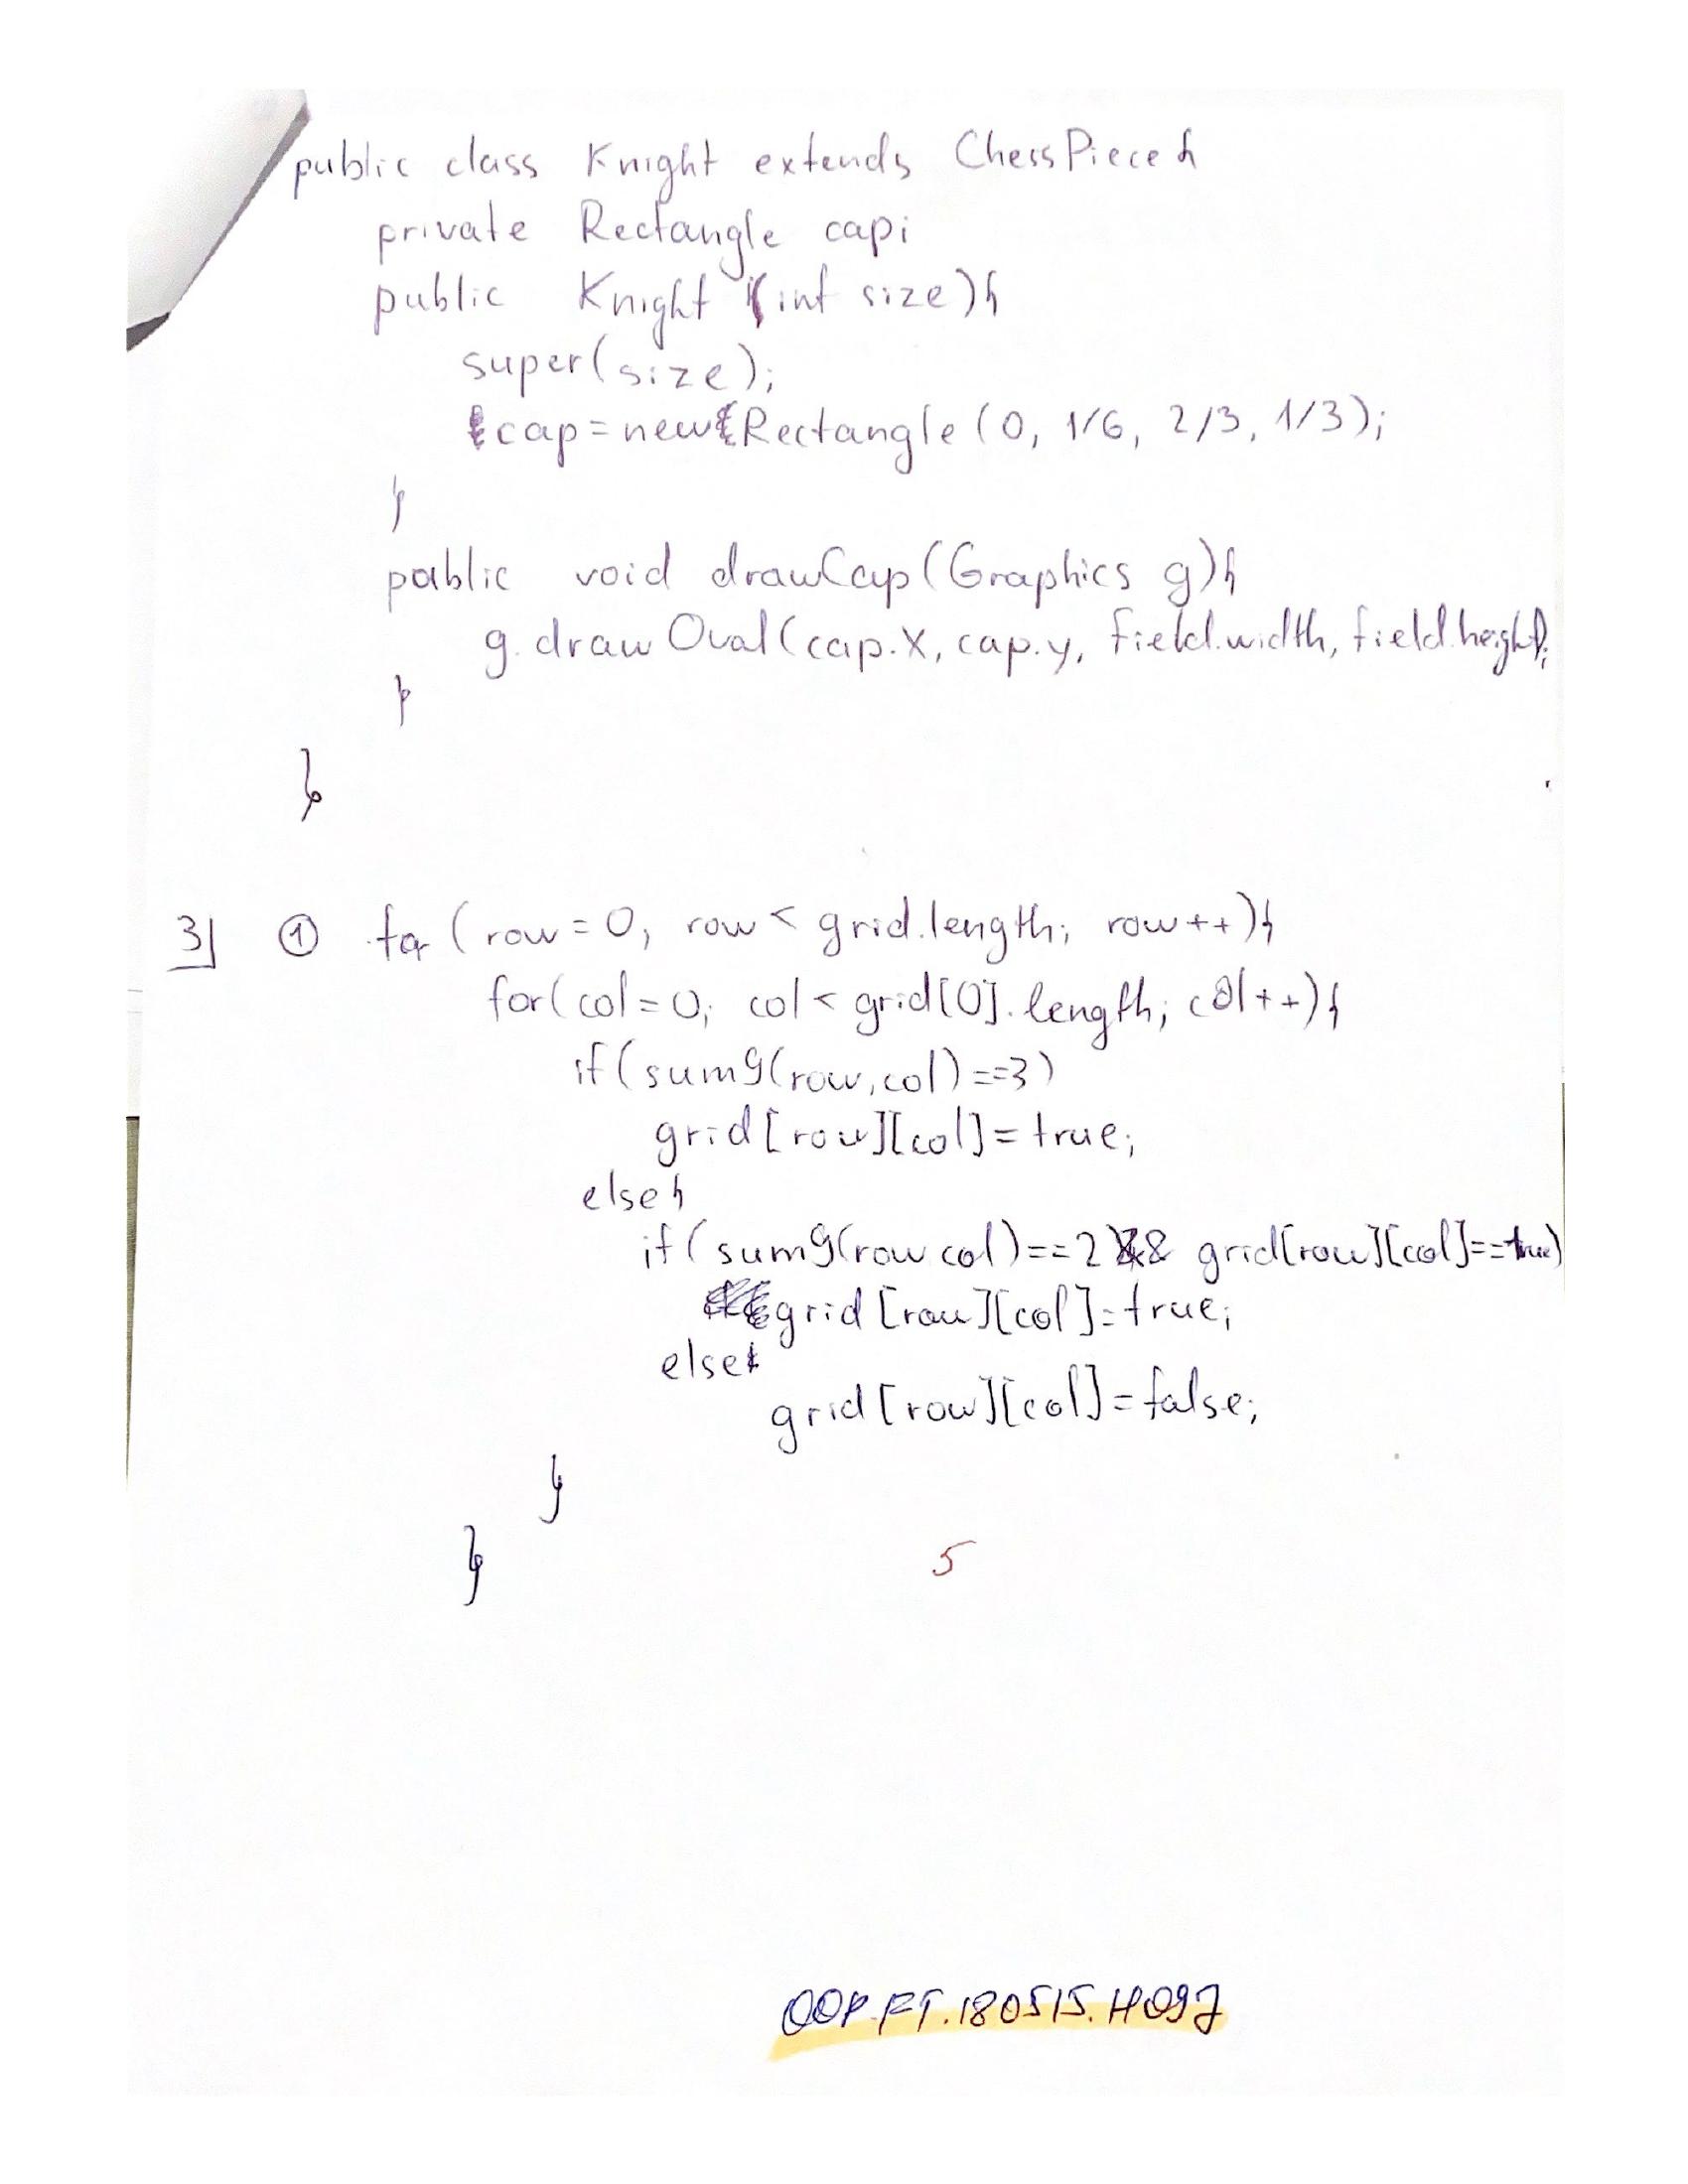 public class Knight extends ChessPiece {
private Rectangle cap;
public Knight (int size){
super(size);
cap = new Rectangle (0, 1/6, 2/3, 1/3);
}
public void drawCap(Graphics g){
g. draw Oval (cap.x, cap.y, field.width, field.height);
}
}
3) ① for (row = 0; row < grid.length; row++){
for( col = 0; col < grid[0].length; col++){
if (sum9(row, col) == 3)
grid [row][col] = true;
else {
if ( sum9(row col) == 2 && grid[row][col] == true)
grid [row][col] = true;
else
grid [row][col] = false;
}
}
5
OOP.FT.180515.H097